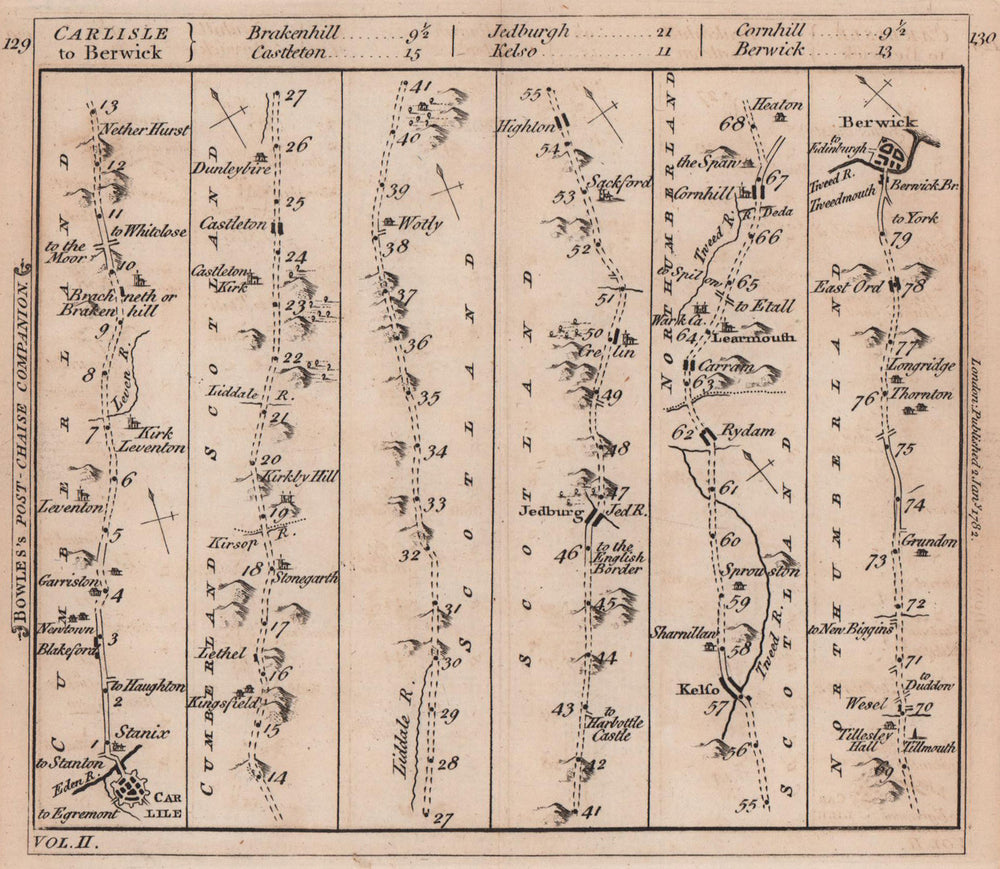 129
CARLISLE
to Berwick
Brakenhill........9½
Castleton........15
Jedburgh........21
Kelso........11
Cornhill........9½
Berwick........13
130
BOWLES's POST-CHAISE COMPANION.
13
Nether Hurst
12
11
to Whitclose
to the
Moor
10
Brachneth or
Brakenhill
9
Leven R.
8
7
Kirk
Leventon
6
Leventon
5
Garriston
4
Newtown
3
Blakeford
to Haughton
2
1
Stanix
to Stanton
Eden R.
CAR
LILE
to Egremont
CUMBERLAND
27
26
Dunleybire
25
Castleton
24
Castleton
Kirk
23
22
Liddale R.
21
20
Kirkby Hill
19
Kirsop R.
18
Stonegarth
17
Lethel
16
Kingsfield
15
14
SCOTLAND
CUMBERLAND
41
40
39
Wotly
38
37
36
35
34
33
32
31
30
29
Liddale R.
28
27
SCOTLAND
55
Highton
54
53
Sackford
52
51
50
Crelin
49
48
47
Jedburg
Jed R.
46
to the
English
Border
45
44
43
to
Harbottle
Castle
42
41
SCOTLAND
NORTHUMBERLAND
Heaton
68
the Spaw
67
Cornhill
R. Deda
Tweed R.
66
65
Spilow
to Etall
Wark Ca.
64
Learmouth
Carram
63
62
Rydam
61
60
Sprouston
59
Sharnillaw
58
Tweed R.
Kelso
57
56
55
SCOTLAND
Berwick
to
Edinburgh
Tweed R.
Tweedmouth
Berwick Br.
to York
79
East Ord
78
77
Longridge
76
Thornton
75
74
Grundon
73
72
to New Biggins
71
to
Duddow
Wesel
70
Tillesley
Hall
Tillmouth
69
NORTHUMBERLAND
London: Published 2 Jany. 1782.
VOL. II.